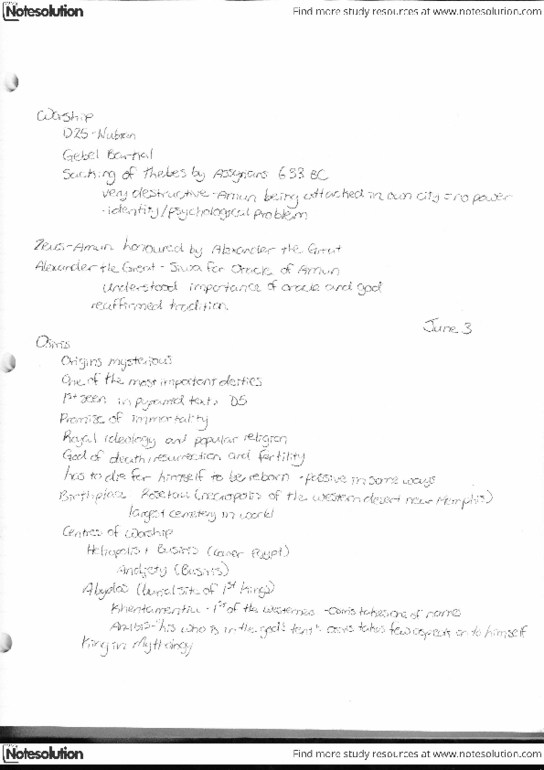 Notesolution
Find more study resources at www.notesolution.com
Worship
D25 - Nubian
Gebel Barkal
Sacking of Thebes by Assyrians 633 BC
very destructive - Amun being attacked in own city = no power
- identity/psychological problem
Zeus-Amun honoured by Alexander the Great
Alexander the Great - Siwa for Oracle of Amun
understood importance of oracle and god
reaffirmed tradition.
June 3
Osiris
Origins mysterious
One of the most important deities
1st seen in pyramid texts D5
Promise of immortality
Royal ideology and popular religion
God of death, resurrection and fertility
has to die for himself to be reborn - passive in some ways
Birthplace Rosetau (necropolis of the western desert near Memphis)
largest cemetery in world
Centres of worship
Heliopolis + Busiris (Lower Egypt)
Andjety (Busiris)
Abydos (burial site of 1st Kings)
Khentamentiu - 1st of the westerners - Osiris takes one of name
Anubis - "his who is in the god's tent" - osiris takes few aspects on to himself
King in Mythology
Notesolution
Find more study resources at www.notesolution.com